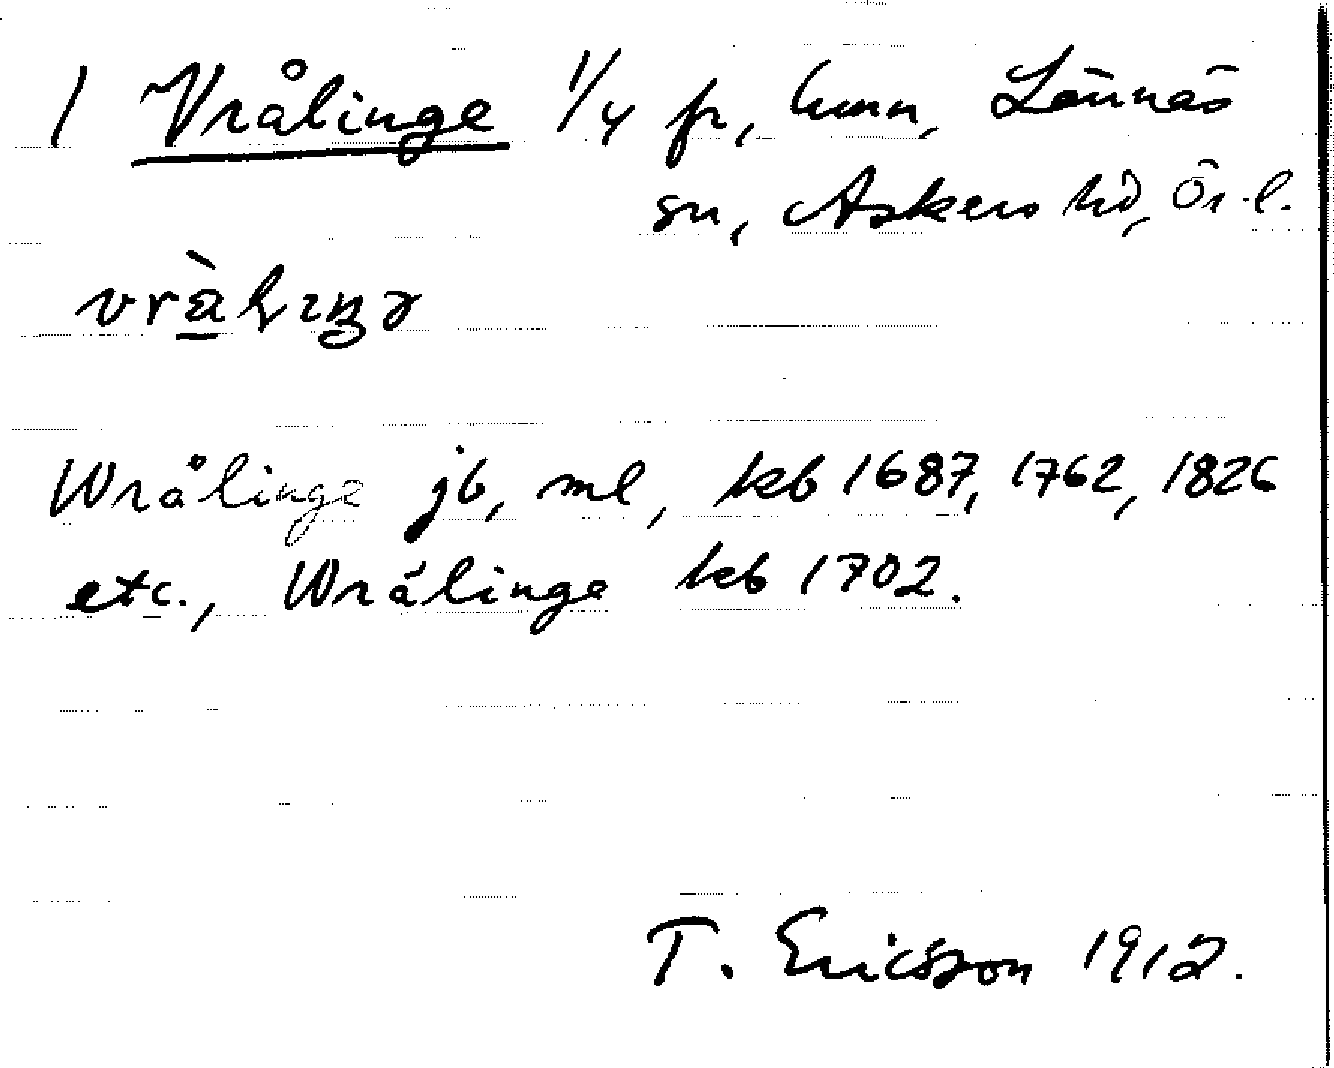 1 Vrålinge 1/4 fr, hmn, Lännäs
sn, Askers hd, Ör. l.
Wrålinge jb, ml, kb 1687, 1762, 1826
etc., Wrálinge kb 1702.
T. Ericsson 1912.